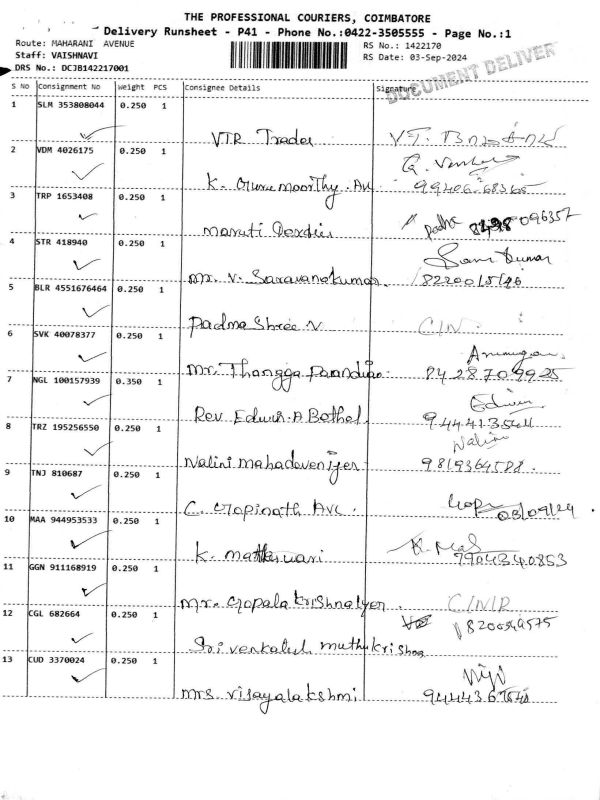 THE PROFESSIONAL COURIERS, COIMBATORE
Delivery Runsheet - P41 - Phone No.:0422-3505555 - Page No.:1
Route: MAHARANI AVENUE
RS No.: 1422170
Staff: VAISHNAVI
RS Date: 03-Sep-2024
DRS No.: DCJB142217001
DOCUMENT DELIVER
S No Consignment No Weight PCS Consignee Details Signature
1 SLM 353808044 0.250 1
VTR Trader
2 VDM 4026175 0.250 1
K. Gurumoorthy. Av
3 TRP 1653408 0.250 1
Maruti
4 STR 418940 0.250 1
Mr. V. Saravanakumar 8220015146
5 BLR 4551676464 0.250 1
Padma Shree N
6 SVK 40078377 0.250 1
Mr. Thangga Pandian 8428709925
7 NGL 100157939 0.350 1
Rev. Edwin. A Bethel. 9444413544
8 TRZ 195256550 0.250 1
Nalini
Nalini Mahadeven Iyer 9819364588.
9 TNJ 810687 0.250 1
C. Gopinath Avc. 03/09/24
10 MAA 944953533 0.250 1
K. 7904340853
11 GGN 911168919 0.250 1
Mr. Gopala Krishnalyer.
12 CGL 682664 0.250 1
Sri Venkatesh Muthukrishna
13 CUD 3370024 0.250 1
Mrs Vijayalakshmi